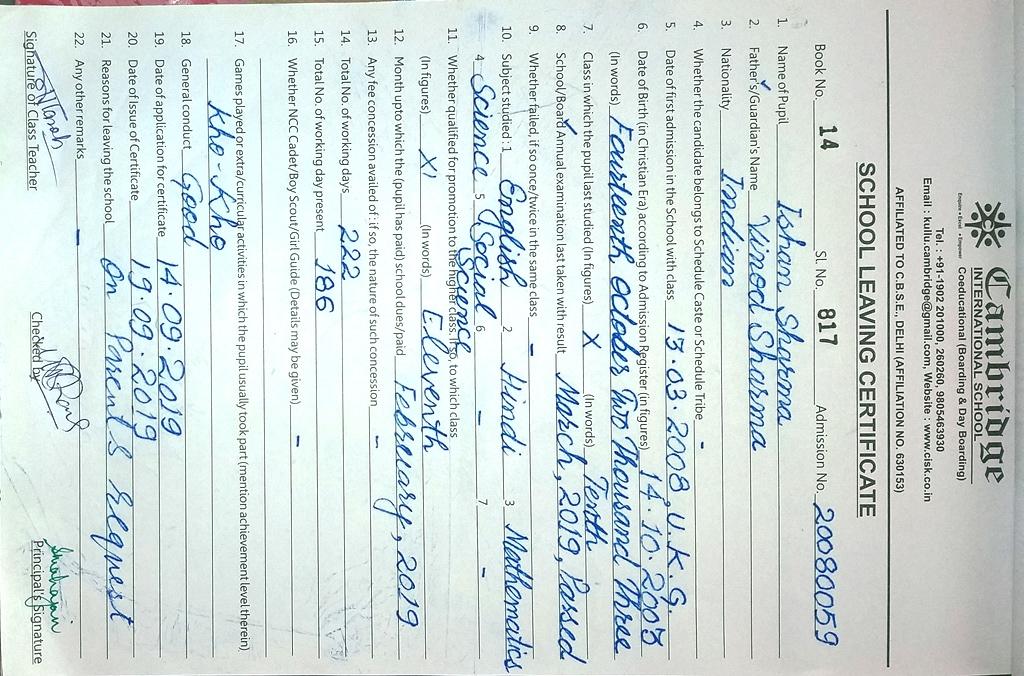 Cambridge
INTERNATIONAL SCHOOL
Enquire • Excel • Empower Coeducational (Boarding & Day Boarding)
Tel. : +91-1902 201000, 260260, 9805463930
Email : kullu.cambridge@gmail.com, Website : www.cisk.co.in
AFFILIATED TO C.B.S.E., DELHI (AFFILIATION NO. 630153)
SCHOOL LEAVING CERTIFICATE
Book No. 14 Sl. No. 817 Admission No. 20080059
1. Name of Pupil Ishan Sharma
2. Father's/Guardian's Name Vinod Sharma
3. Nationality Indian
4. Whether the candidate belongs to Schedule Caste or Schedule Tribe -
5. Date of first admission in the School with class 13.03.2008, U.K.G.
6. Date of Birth (in Christian Era) according to Admission Register (in figures) 14.10.2003
(In words) Fourteenth October Two Thousand Three
7. Class in which the pupil last studied (In figures) X (In words) Tenth
8. School/Board Annual examination last taken with result March, 2019, Passed
9. Whether failed, if so once/twice in the same class -
10. Subject studied: 1 English 2 Hindi 3 Mathematics
4 Science 5 Social Science 6 - 7 -
11. Whether qualified for promotion to the higher class. If so, to which class
(In figures) XI (In words) Eleventh
12. Month upto which the (pupil has paid) school dues/paid February, 2019
13. Any fee concession availed of: if so, the nature of such concession -
14. Total No. of working days 222
15. Total No. of working day present 186
16. Whether NCC Cadet/Boy Scout/Girl Guide (Details may be given) -
17. Games played or extra/curricular activities in which the pupil usually took part (mention achievement level therein)
Kho-Kho
18. General conduct Good
19. Date of application for certificate 14.09.2019
20. Date of Issue of Certificate 19.09.2019
21. Reasons for leaving the school On Parent's Request
22. Any other remarks -
Signature of Class Teacher Checked by Principal's Signature